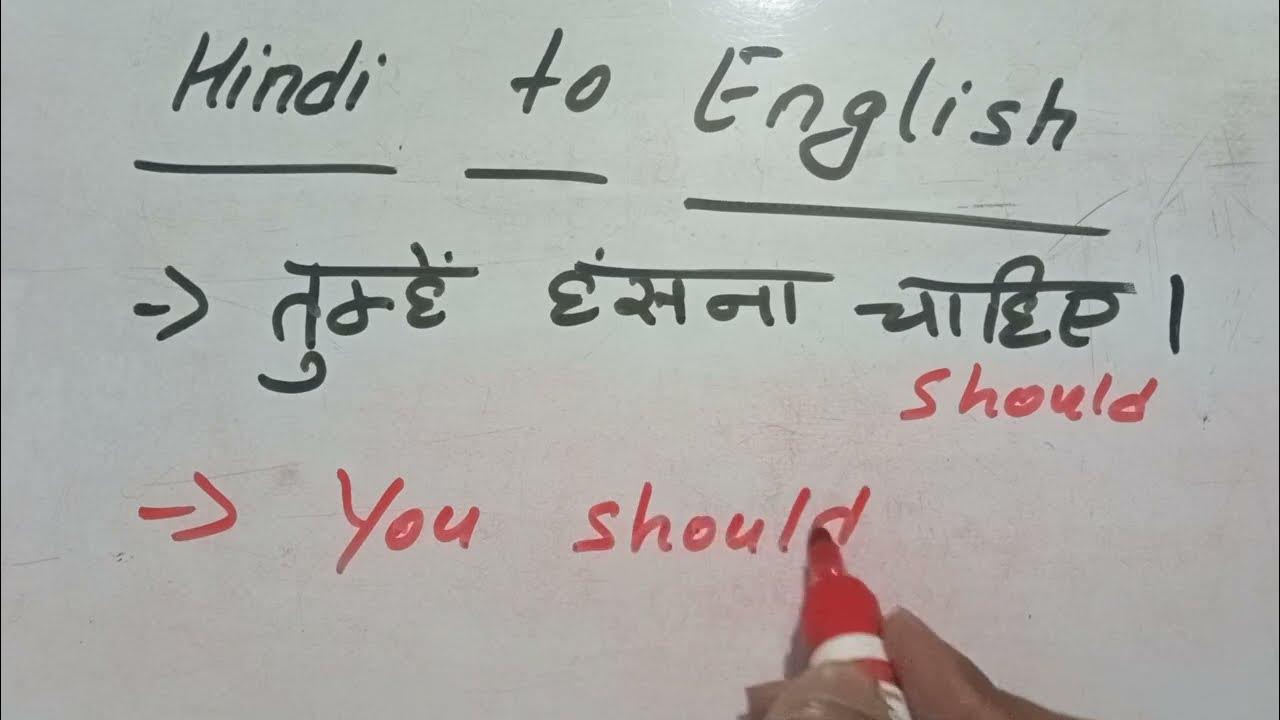 Hindi to English
-> तुम्हें हंसना चाहिए।
should
-> You should